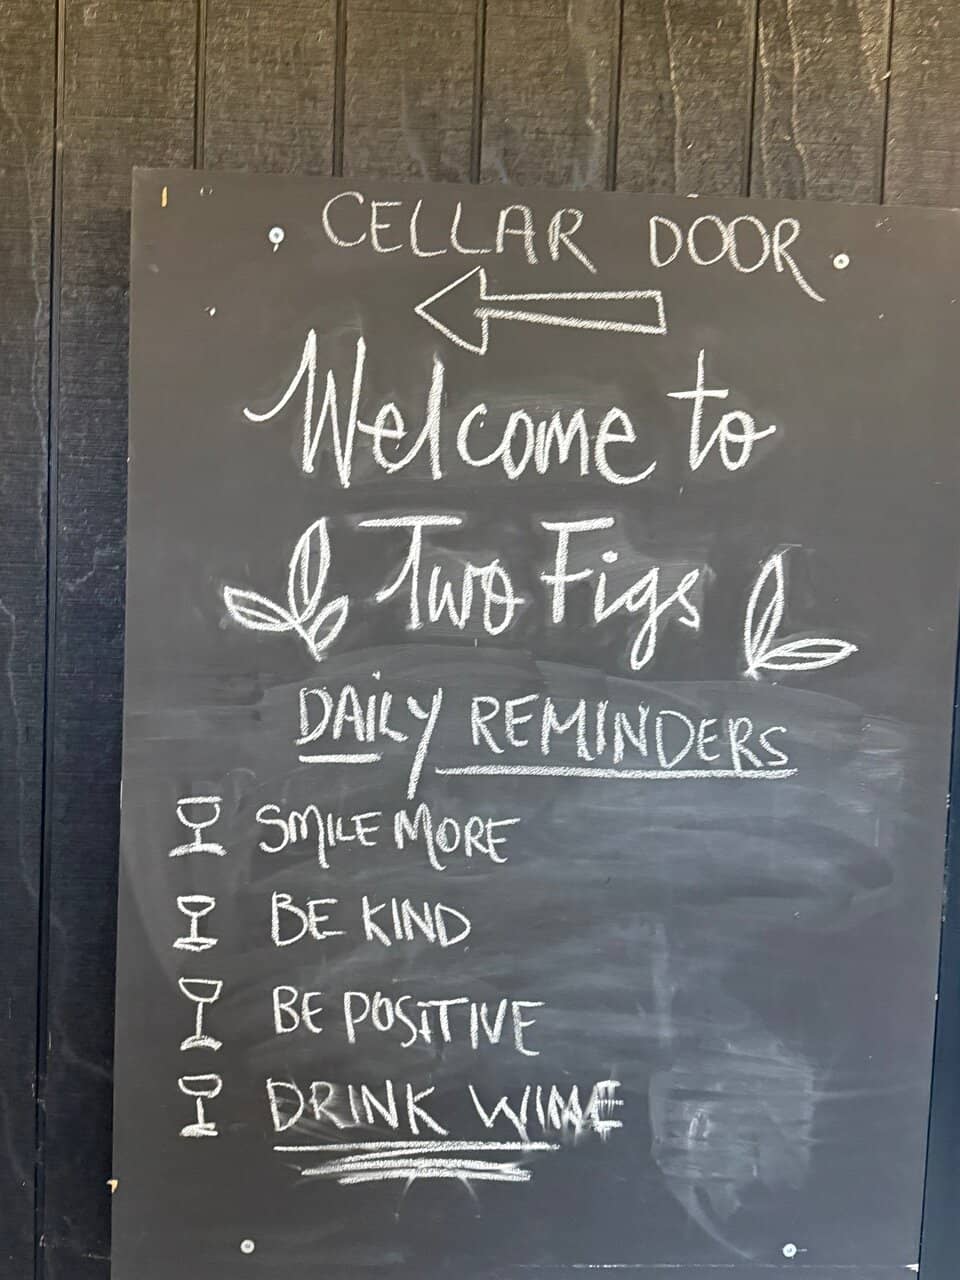 CELLAR DOOR
Welcome to
Two Figs
DAiLY REMINDERS
SMILE MORE
BE KIND
BE POSiTIVE
DRINK WINE